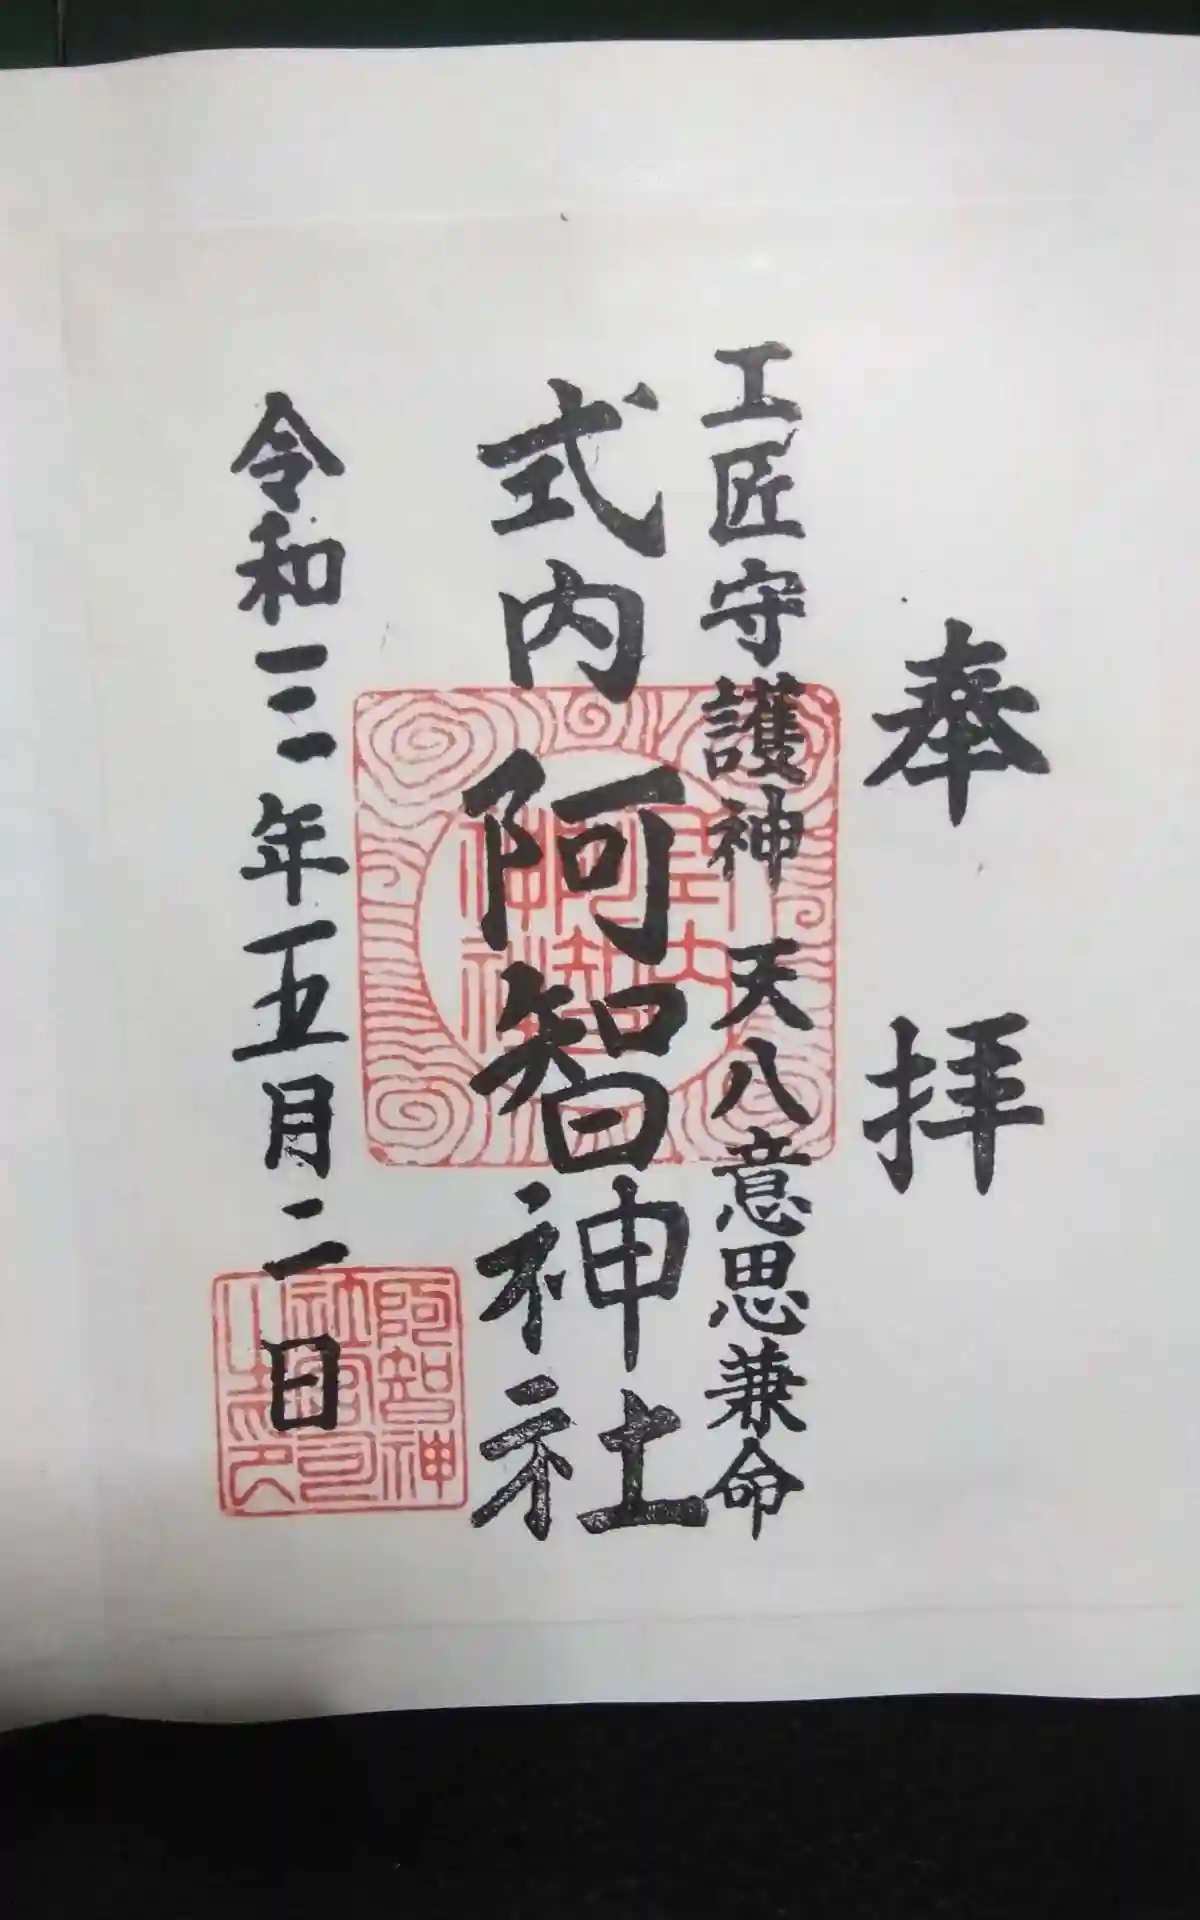 奉拝
工匠守護神 天八意思兼命
式内 阿智神社
令和三年五月二日
式内
阿智
神社
阿智神
社宮司
之印